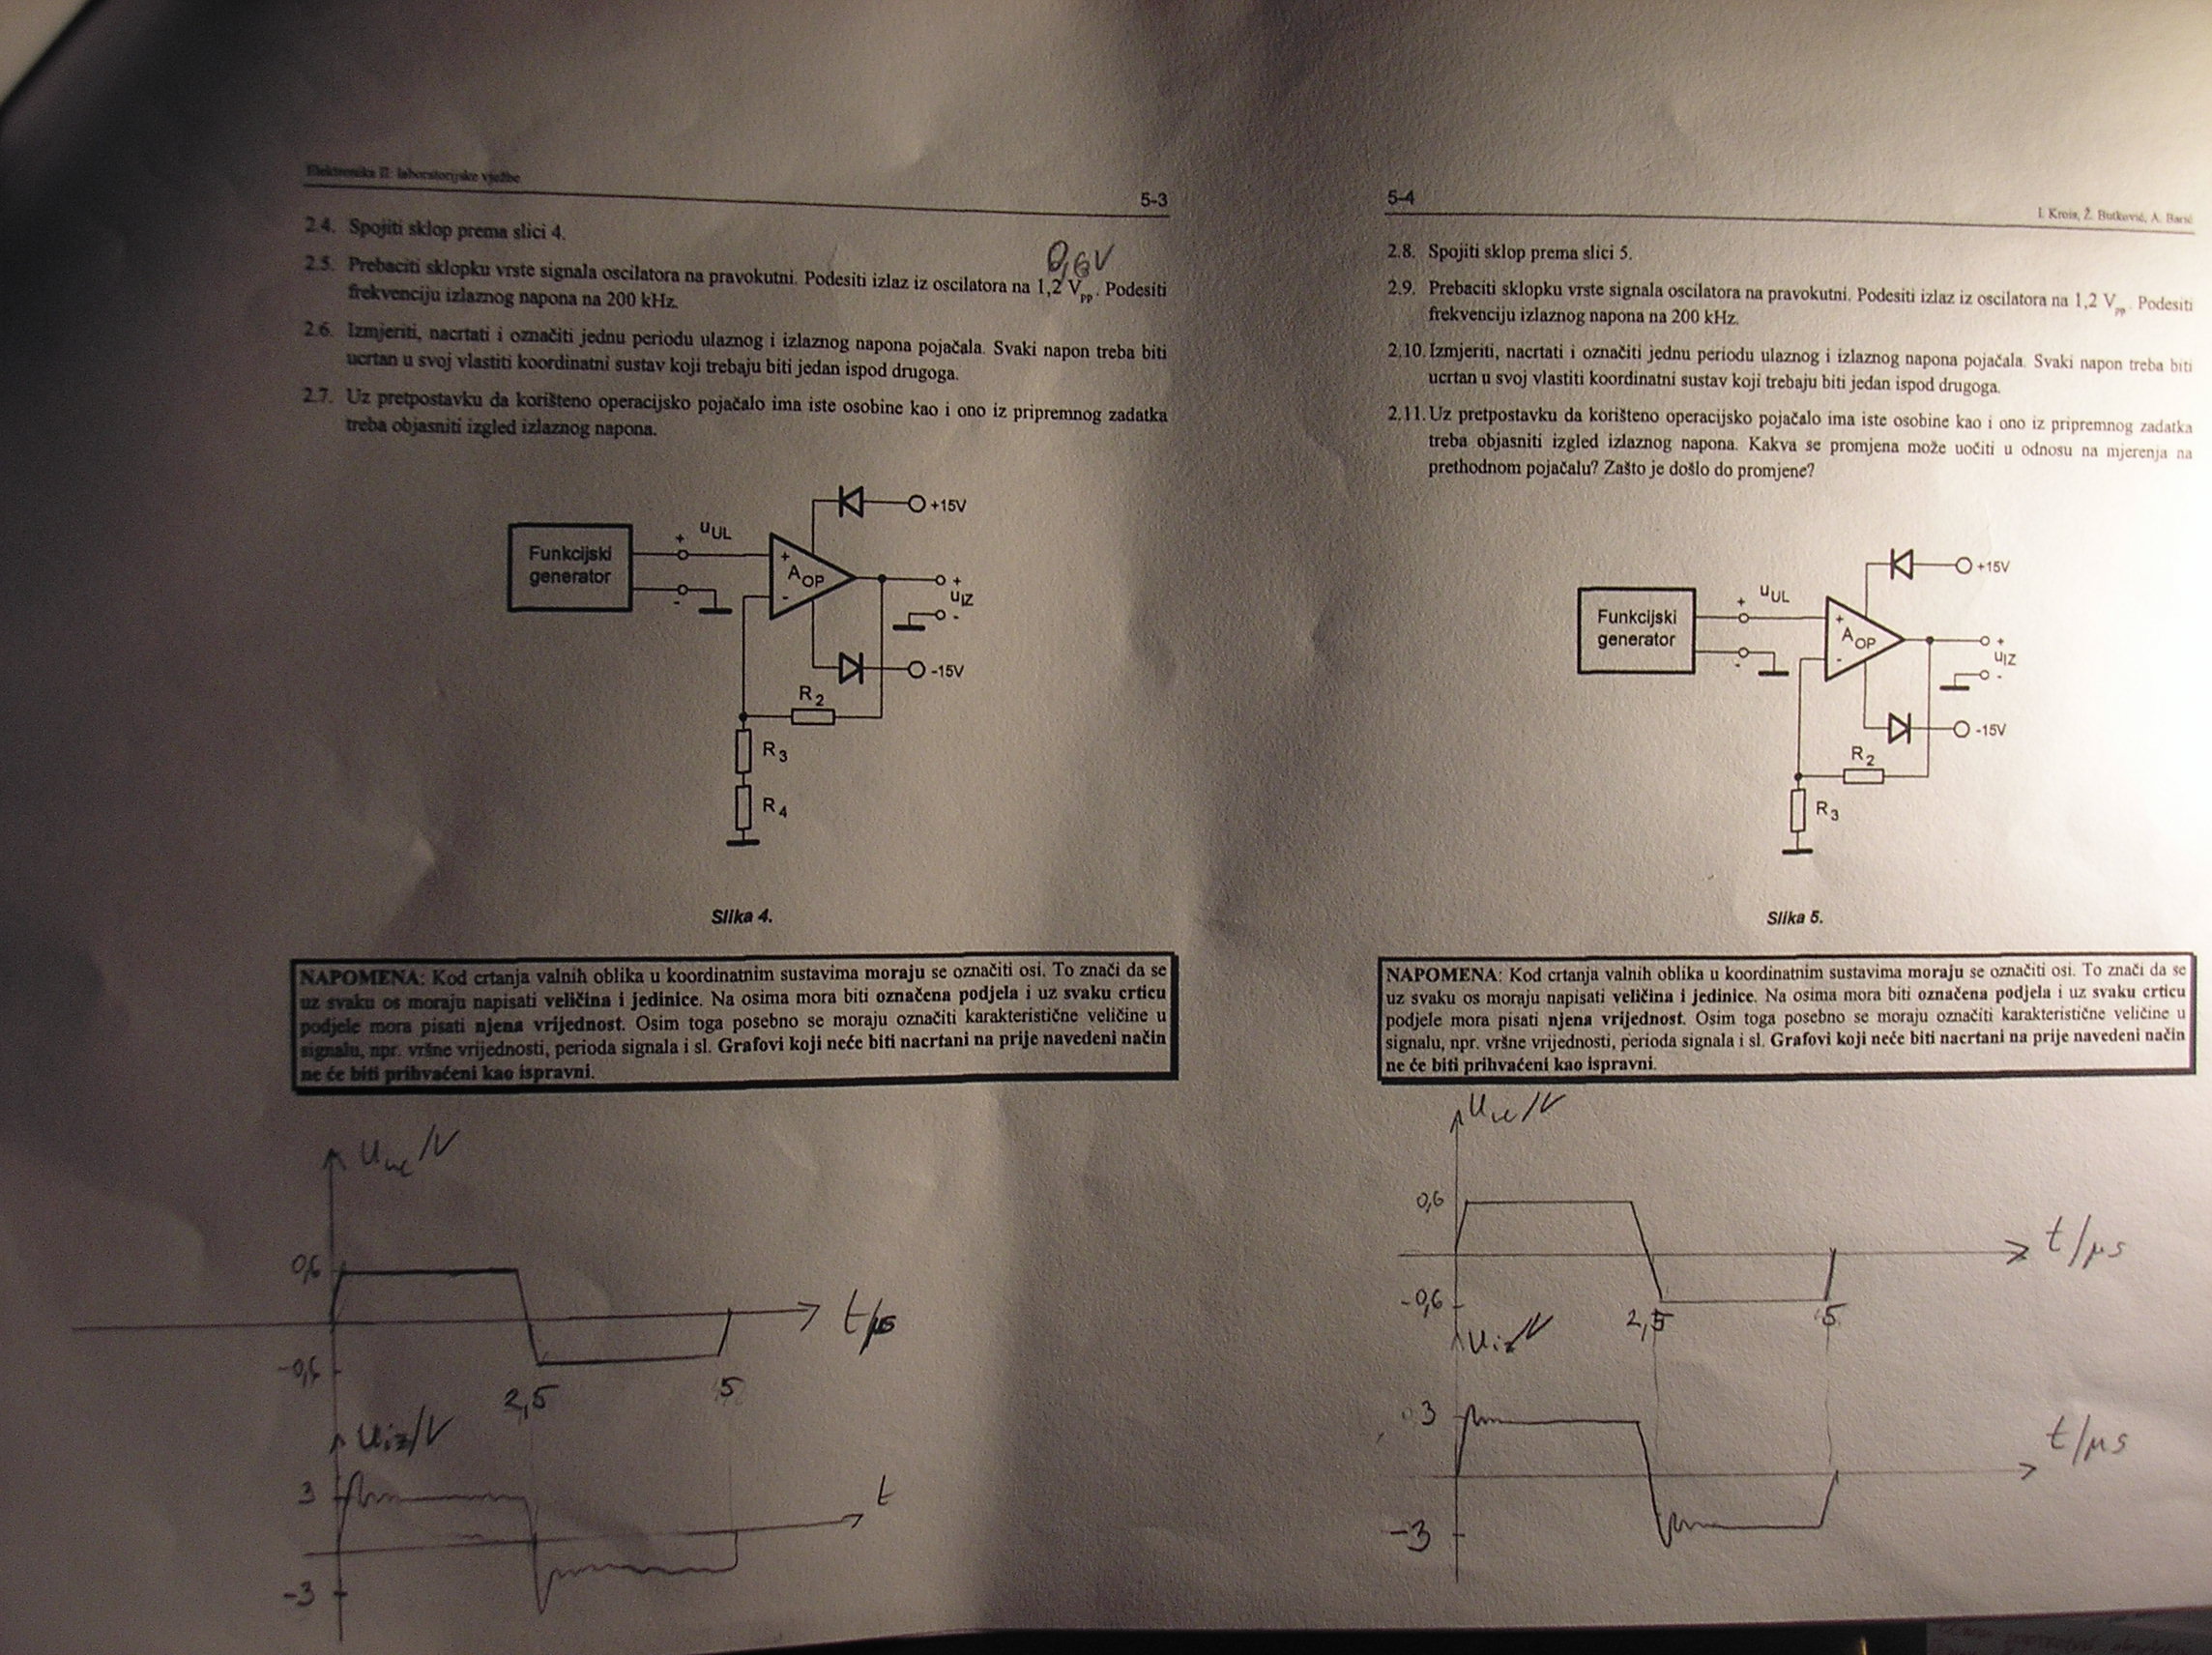 Elektronika II: laboratorijske vježbe
5-3
2.4. Spojiti sklop prema slici 4.
0,6V
2.5. Prebaciti sklopku vrste signala oscilatora na pravokutni. Podesiti izlaz iz oscilatora na 1,2 Vpp. Podesiti
frekvenciju izlaznog napona na 200 kHz.
2.6. Izmjeriti, nacrtati i označiti jednu periodu ulaznog i izlaznog napona pojačala. Svaki napon treba biti
ucrtan u svoj vlastiti koordinatni sustav koji trebaju biti jedan ispod drugoga.
2.7. Uz pretpostavku da korišteno operacijsko pojačalo ima iste osobine kao i ono iz pripremnog zadatka
treba objasniti izgled izlaznog napona.
+15V
+ uUL
Funkcijski
generator
+
AOP
-
+
uIZ
-
-
-15V
R2
R3
R4
Slika 4.
NAPOMENA: Kod crtanja valnih oblika u koordinatnim sustavima moraju se označiti osi. To znači da se
uz svaku os moraju napisati veličina i jedinice. Na osima mora biti označena podjela i uz svaku crticu
podjele mora pisati njena vrijednost. Osim toga posebno se moraju označiti karakteristične veličine u
signalu, npr. vršne vrijednosti, perioda signala i sl. Grafovi koji neće biti nacrtani na prije navedeni način
ne će biti prihvaćeni kao ispravni.
/V
0,6
t/μs
-0,6
2,5
5
Uiz/V
3
t
-3
5-4
I. Krois, Ž. Butković, A. Barić
2.8. Spojiti sklop prema slici 5.
2.9. Prebaciti sklopku vrste signala oscilatora na pravokutni. Podesiti izlaz iz oscilatora na 1,2 Vpp. Podesiti
frekvenciju izlaznog napona na 200 kHz.
2.10. Izmjeriti, nacrtati i označiti jednu periodu ulaznog i izlaznog napona pojačala. Svaki napon treba biti
ucrtan u svoj vlastiti koordinatni sustav koji trebaju biti jedan ispod drugoga.
2.11. Uz pretpostavku da korišteno operacijsko pojačalo ima iste osobine kao i ono iz pripremnog zadatka
treba objasniti izgled izlaznog napona. Kakva se promjena može uočiti u odnosu na mjerenja na
prethodnom pojačalu? Zašto je došlo do promjene?
+15V
+ uUL
Funkcijski
generator
+
AOP
-
+
uIZ
-
-
-15V
R2
R3
Slika 5.
NAPOMENA: Kod crtanja valnih oblika u koordinatnim sustavima moraju se označiti osi. To znači da se
uz svaku os moraju napisati veličina i jedinice. Na osima mora biti označena podjela i uz svaku crticu
podjele mora pisati njena vrijednost. Osim toga posebno se moraju označiti karakteristične veličine u
signalu, npr. vršne vrijednosti, perioda signala i sl. Grafovi koji neće biti nacrtani na prije navedeni način
ne će biti prihvaćeni kao ispravni.
/V
0,6
t/μs
-0,6
2,5
5
Uiz/V
3
t/μs
-3